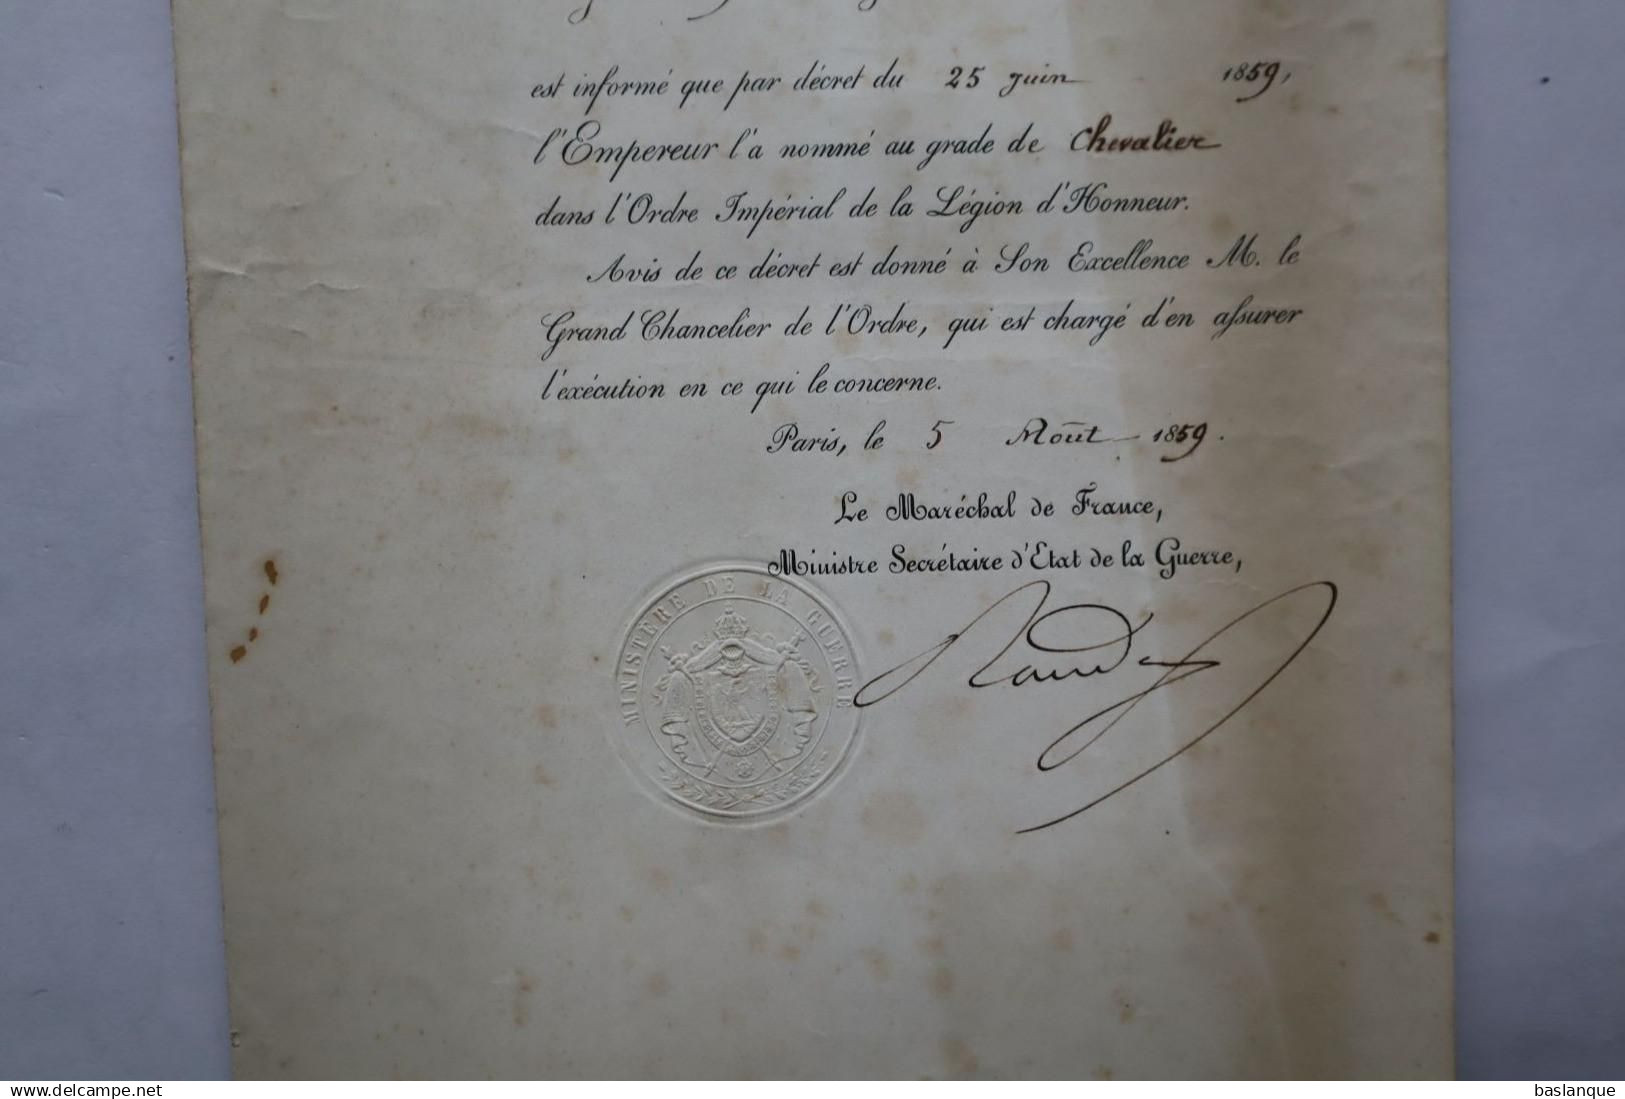 est informé que par décret du 25 juin 1859,
l'Empereur l'a nommé au grade de Chevalier
dans l'Ordre Impérial de la Légion d'Honneur.
Avis de ce décret est donné à Son Excellence M. le
Grand Chancelier de l'Ordre, qui est chargé d'en assurer
l'exécution en ce qui le concerne.
Paris, le 5 Août 1859.
Le Maréchal de France,
Ministre Secrétaire d'Etat de la Guerre,
MINISTÈRE DE LA GUERRE
Randon
www.delcampe.net
baslanque